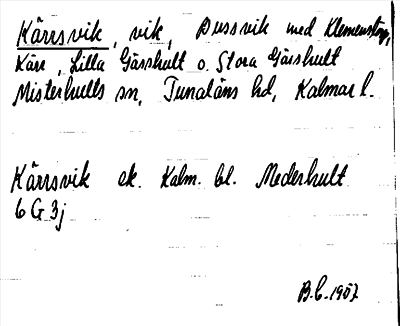 Kärrsvik, vik, Dussvik med Klemenstorp,
Kärr, Lilla Gässhult o. Stora Gässhult
Misterhults sn, Tunaläns hd, Kalmar l.
Kärrsvik ek. Kalm. bl. Mederhult
6 G 3j
B.C. 1957